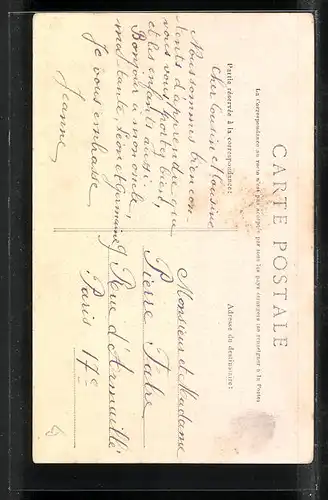 CARTE POSTALE
La Correspondance au recto n'est pas acceptée par tous les pays étrangers (se renseigner à la Poste)
Partie réservée à la correspondance:
Adresse du destinataire:
Cher Cousin et Cousine
Nous sommes bien con-
tents d'aprendre que
vous vous portez bien,
et les enfants aussi.
Bonjour a mon oncle,
ma tante, Léon et Germaine
Je vous embrasse
Jeanne
Monsieur et Madame
Pierre Fabre
Rue d'Armaillé
Paris 17e